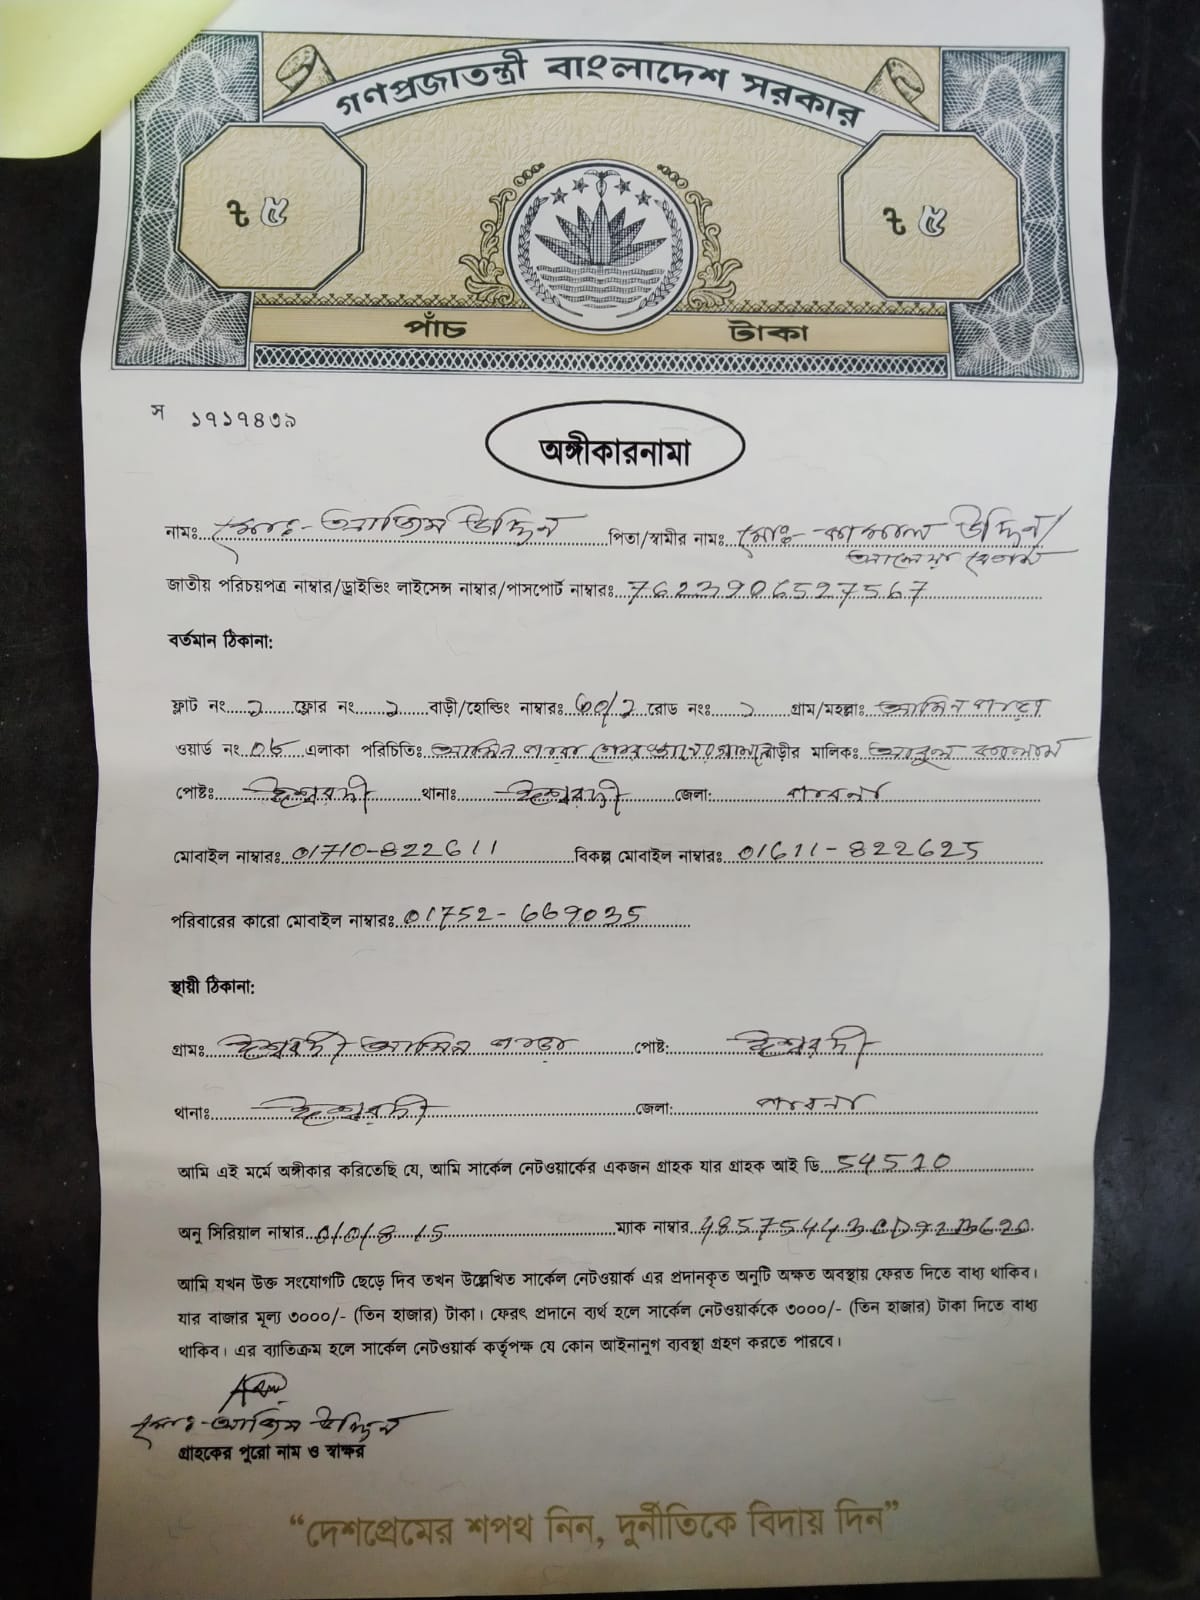 গণপ্রজাতন্ত্রী বাংলাদেশ সরকার
৳ ৫ ৳ ৫
পাঁচ টাকা
স ১৭১৭৪৩৯
অঙ্গীকারনামা
নামঃ মোঃ-আজিম উদ্দিন পিতা/স্বামীর নামঃ মোঃ-কামাল উদ্দিন/
আলেয়া বেগম
জাতীয় পরিচয়পত্র নাম্বার/ড্রাইভিং লাইসেন্স নাম্বার/পাসপোর্ট নাম্বারঃ 7623906527567
বর্তমান ঠিকানা:
ফ্লাট নং ১ ফ্লোর নং ১ বাড়ী/হোল্ডিং নাম্বারঃ ৬০/১ রোড নংঃ ১ গ্রাম/মহল্লাঃ আমিন পাড়া
ওয়ার্ড নং এলাকা পরিচিতিঃ আমিন পাড়া বাড়ীর মালিকঃ আবুল কালাম
পোষ্টঃ ঈশ্বরদী থানাঃ ঈশ্বরদী জেলা: পাবনা
মোবাইল নাম্বারঃ 01710-822611 বিকল্প মোবাইল নাম্বারঃ 01611-822625
পরিবারের কারো মোবাইল নাম্বারঃ 01752-669035
স্থায়ী ঠিকানা:
গ্রামঃ ঈশ্বরদী আমিন পাড়া পোষ্ট: ঈশ্বরদী
থানাঃ ঈশ্বরদী জেলা: পাবনা
আমি এই মর্মে অঙ্গীকার করিতেছি যে, আমি সার্কেল নেটওয়ার্কের একজন গ্রাহক যার গ্রাহক আই ডি 54510
অনু সিরিয়াল নাম্বার ম্যাক নাম্বার
আমি যখন উক্ত সংযোগটি ছেড়ে দিব তখন উল্লেখিত সার্কেল নেটওয়ার্ক এর প্রদানকৃত অনুটি অক্ষত অবস্থায় ফেরত দিতে বাধ্য থাকিব।
যার বাজার মূল্য ৩০০০/- (তিন হাজার) টাকা। ফেরৎ প্রদানে ব্যর্থ হলে সার্কেল নেটওয়ার্ককে ৩০০০/- (তিন হাজার) টাকা দিতে বাধ্য
থাকিব। এর ব্যতিক্রম হলে সার্কেল নেটওয়ার্ক কর্তৃপক্ষ যে কোন আইনানুগ ব্যবস্থা গ্রহণ করতে পারবে।
মোঃ-আজিম উদ্দিন
গ্রাহকের পুরো নাম ও স্বাক্ষর
“দেশপ্রেমের শপথ নিন, দুর্নীতিকে বিদায় দিন”